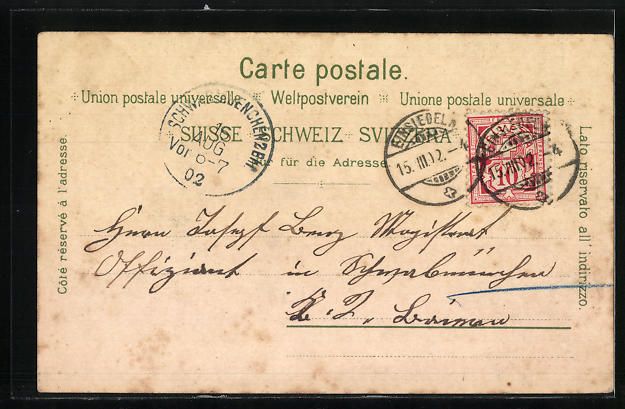 Carte postale.
Union postale universelle Weltpostverein Unione postale universale
SUISSE SCHWEIZ SVIZZERA
für die Adresse.
Côté réservé à l'adresse.
Lato riservato all' indirizzo.
16
AUG
Vor 6-7
02
EINSIEDELN
15. III. 02. - 4
10
Herrn Josef Benz Magistrat
Offiziant in Schwabmünchen